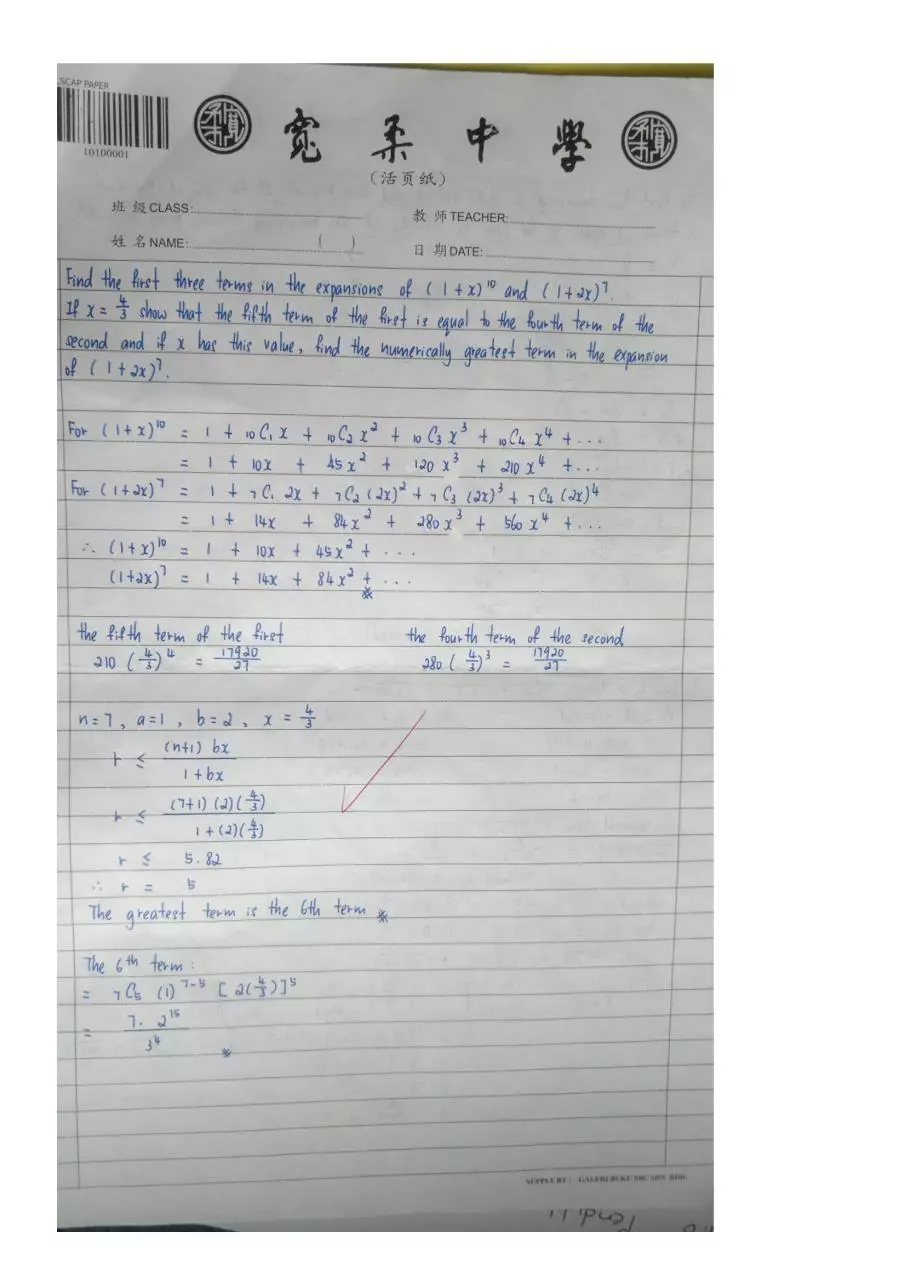 SCAP PAPER
10100001
寬柔中學
(活页纸)
班级CLASS:
教师TEACHER:
姓名NAME: ( )
日期DATE:
Find the first three terms in the expansions of (1+x)^10 and (1+2x)^7.
If x = 4/3 show that the fifth term of the first is equal to the fourth term of the
second and if x has this value, find the numerically greatest term in the expansion
of (1+2x)^7.
For (1+x)^10 = 1 + 10C1 x + 10C2 x^2 + 10C3 x^3 + 10C4 x^4 + ...
= 1 + 10x + 45x^2 + 120x^3 + 210x^4 + ...
For (1+2x)^7 = 1 + 7C1 2x + 7C2 (2x)^2 + 7C3 (2x)^3 + 7C4 (2x)^4
= 1 + 14x + 84x^2 + 280x^3 + 560x^4 + ...
∴ (1+x)^10 = 1 + 10x + 45x^2 + ...
(1+2x)^7 = 1 + 14x + 84x^2 + ...
the fifth term of the first
the fourth term of the second
210 (4/3)^4 = 17920/27
280 (4/3)^3 = 17920/27
n=7, a=1, b=2, x = 4/3
r ≤ (n+1) bx / 1+bx
r ≤ (7+1)(2)(4/3) / 1+(2)(4/3)
r ≤ 5.82
∴ r = 5
The greatest term is the 6th term
The 6th term:
= 7C5 (1)^7-5 [2(4/3)]^5
= 7·2^15 / 3^4
SUPPLY BY : GALERI BUKU SBC SDN BHD